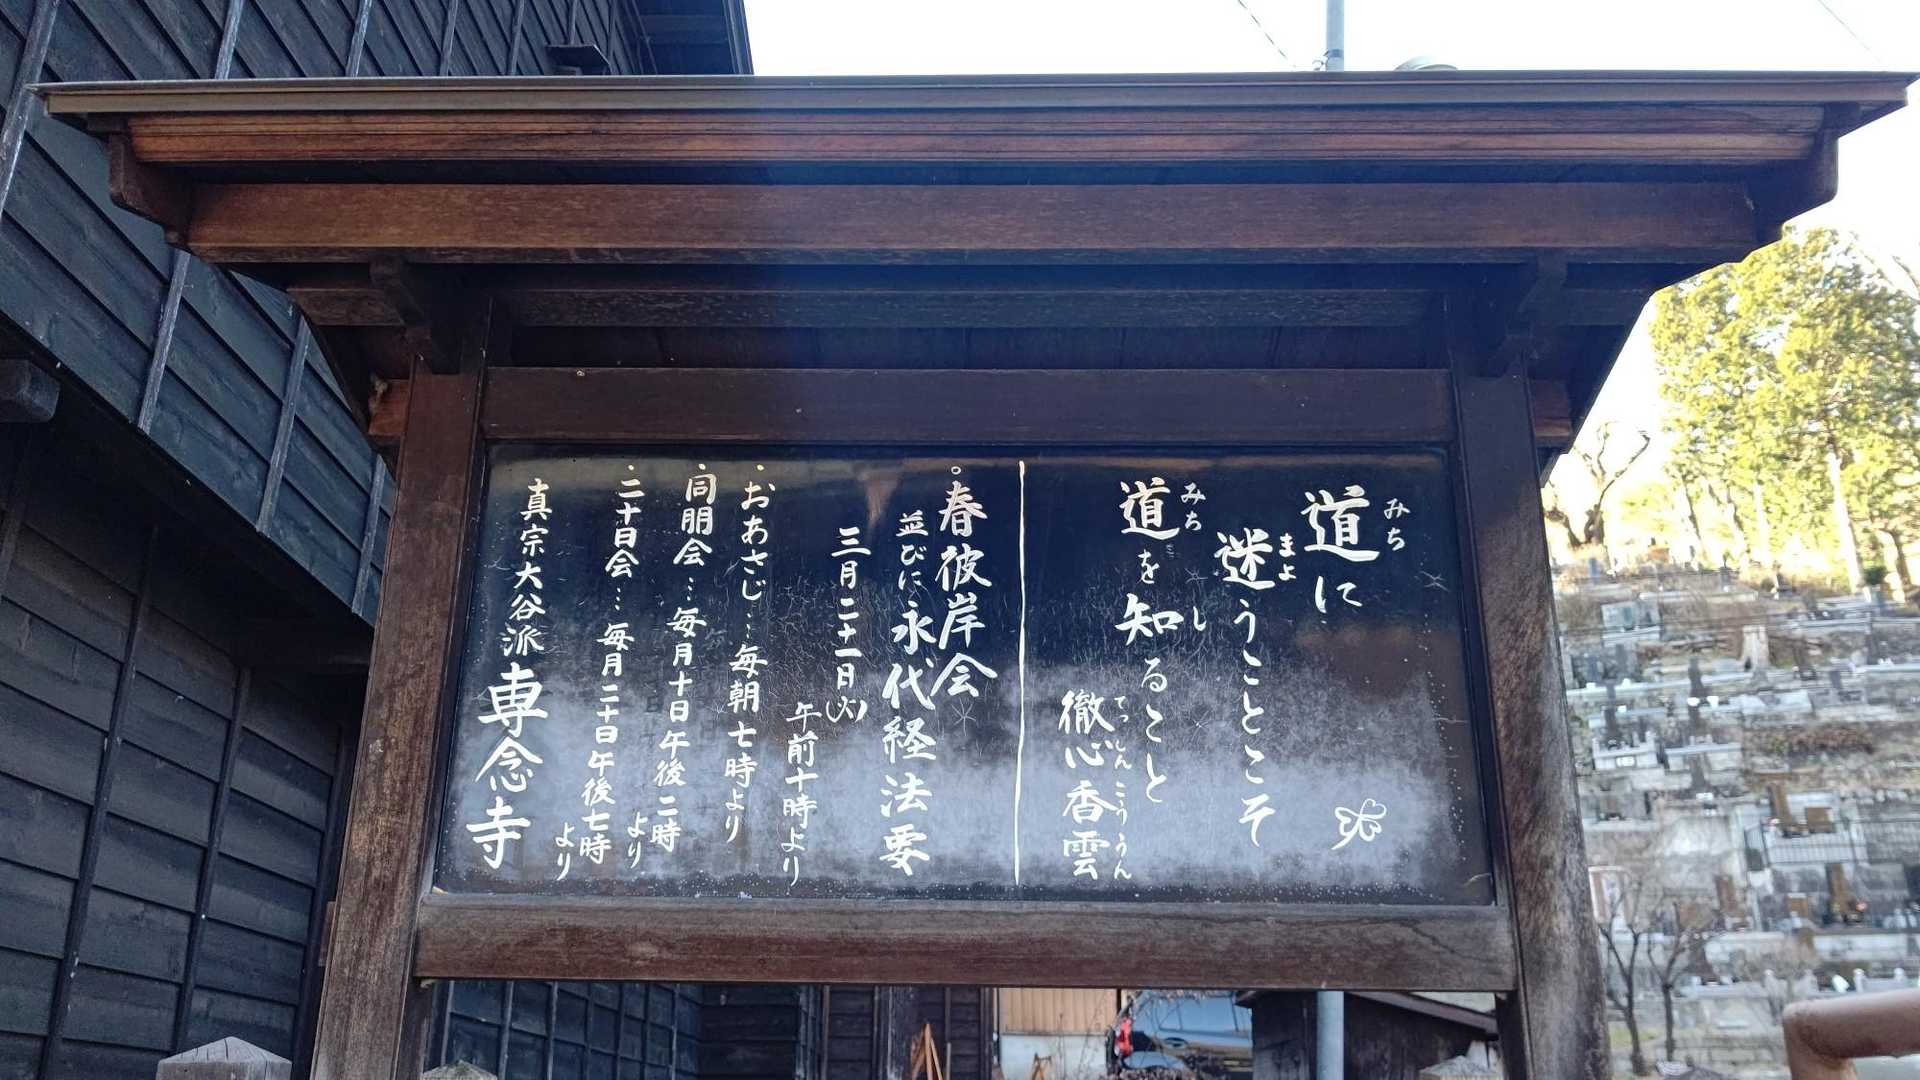 道に
迷うことこそ
道を知ること
徹心香雲
みち
まよ
みち
し
てっしんこううん
。春彼岸会
並びに永代経法要
三月二十一日(火)
午前十時より
・おあさじ…毎朝七時より
・同朋会…毎月十日午後二時より
・二十日会…毎月二十日午後七時より
真宗大谷派専念寺